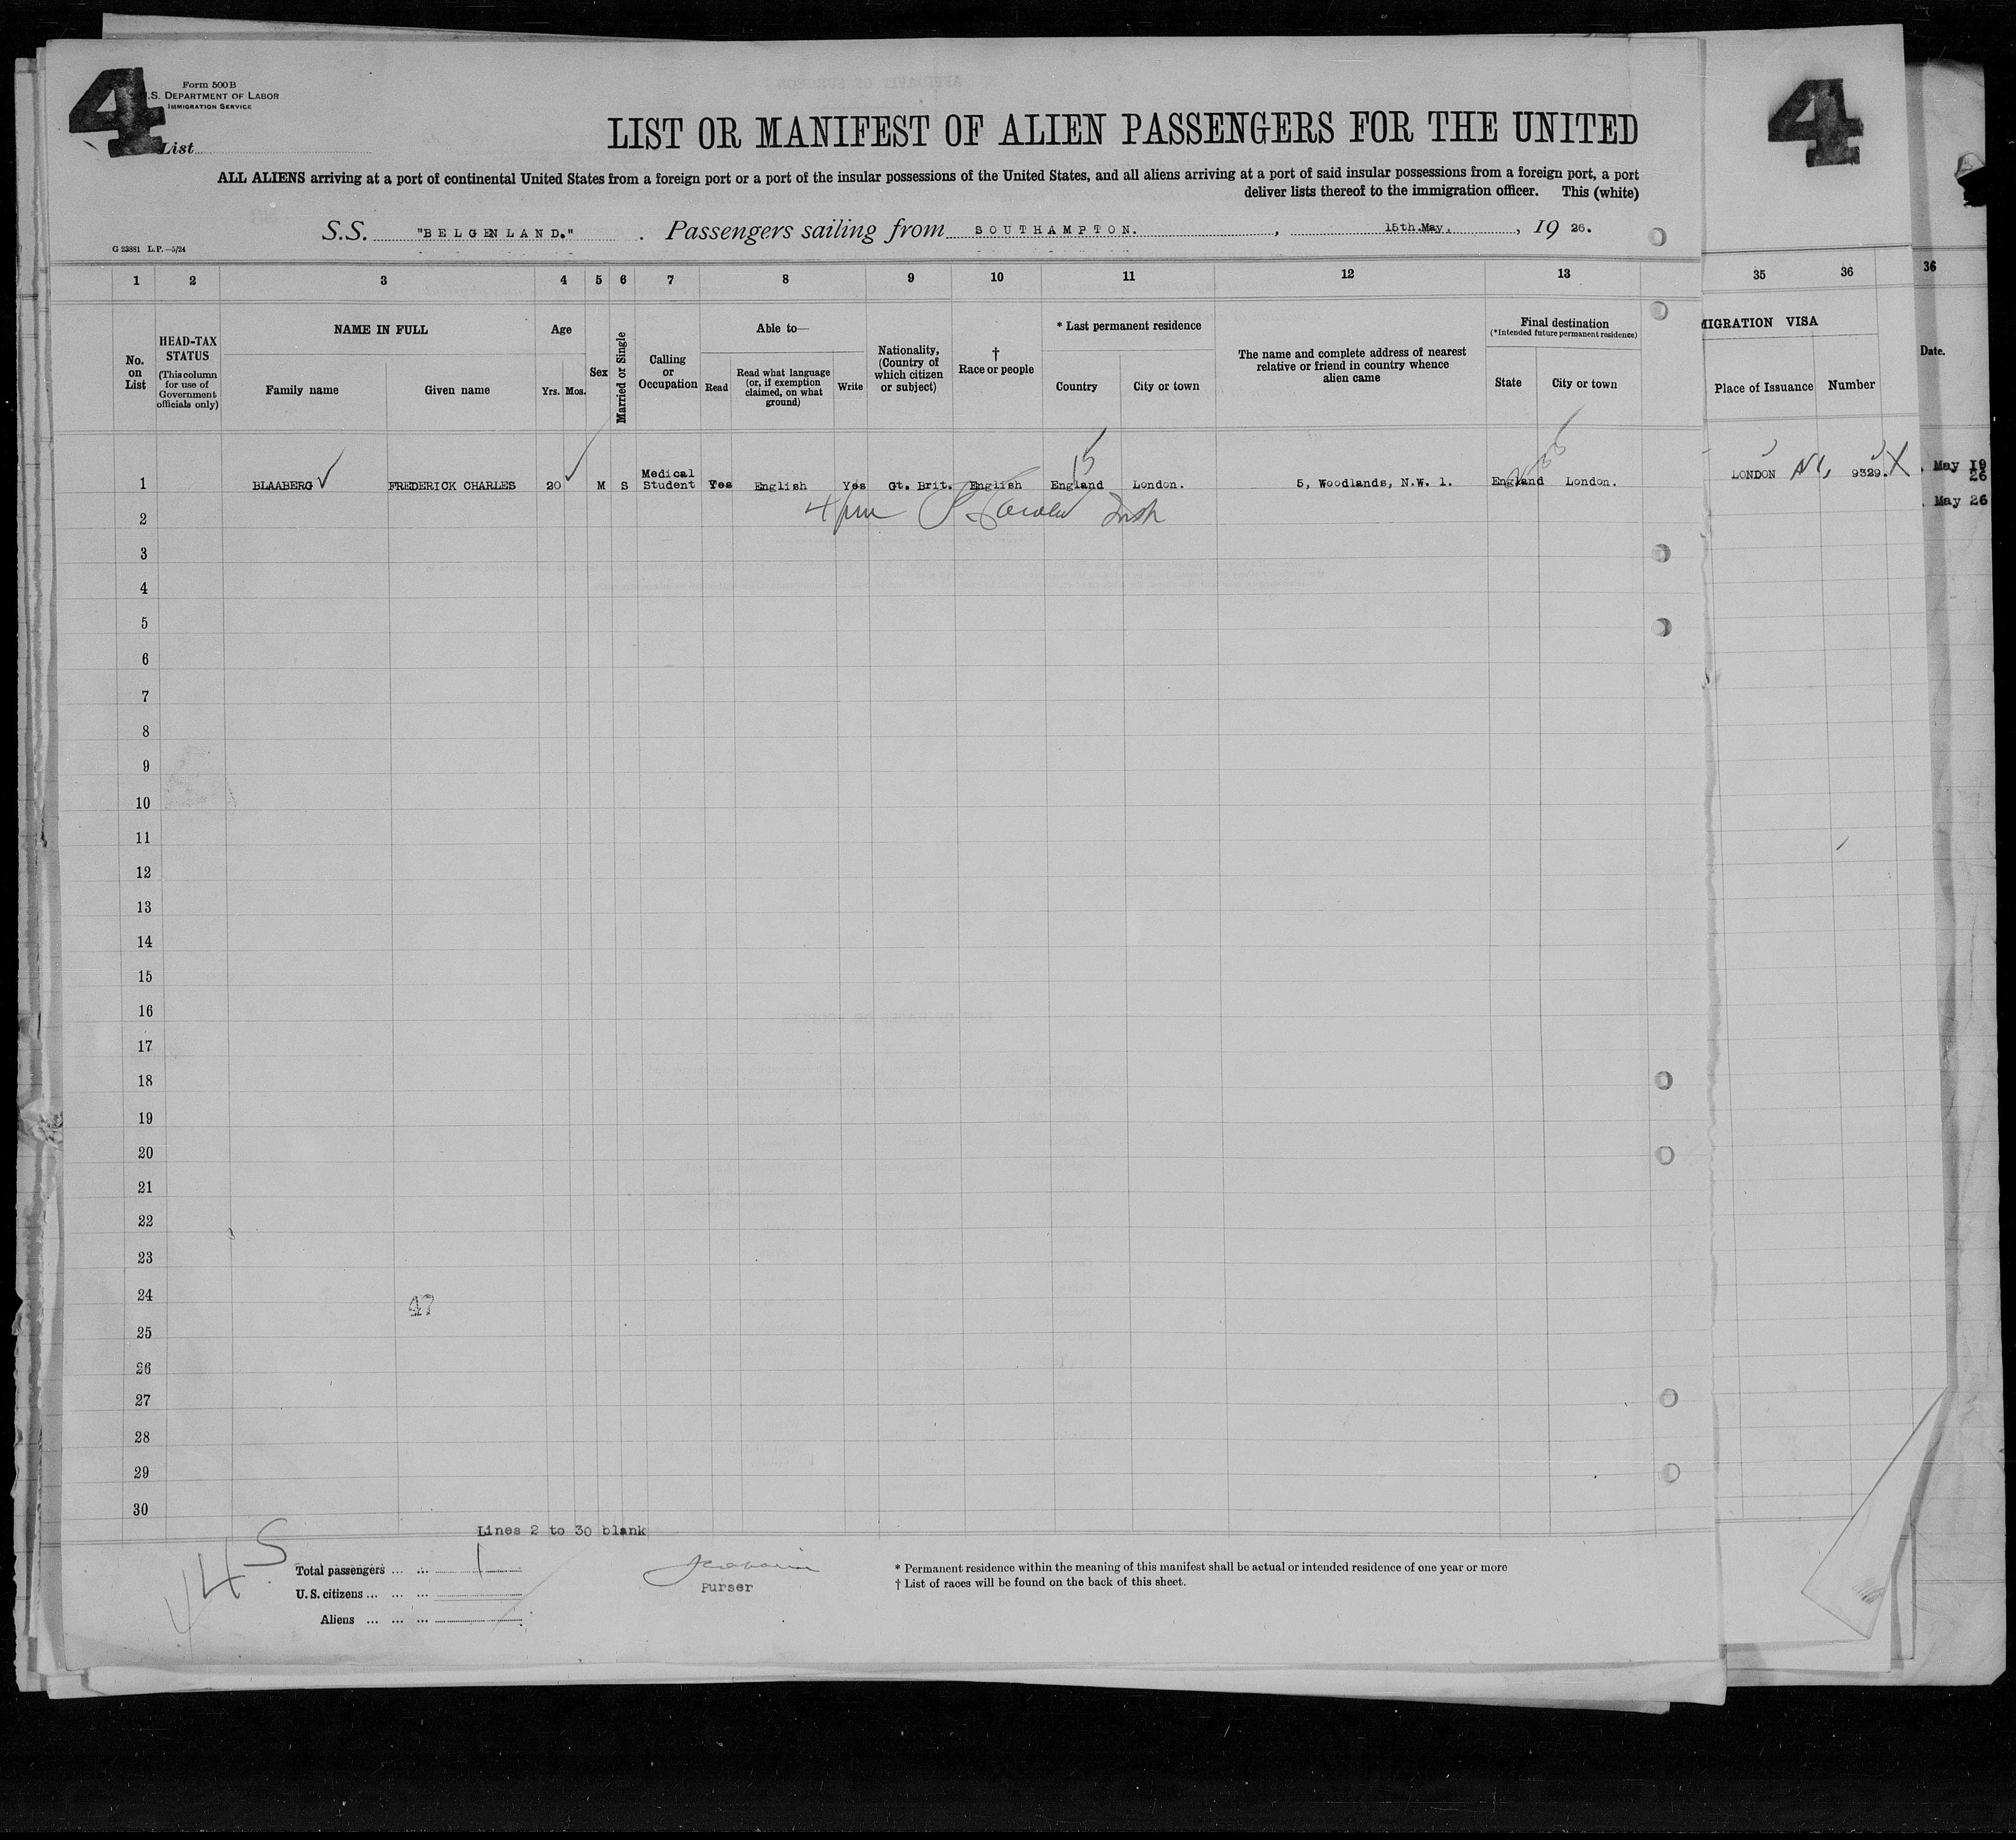 4
4
Form 500B
U.S. DEPARTMENT OF LABOR
IMMIGRATION SERVICE
List
LIST OR MANIFEST OF ALIEN PASSENGERS FOR THE UNITED
ALL ALIENS arriving at a port of continental United States from a foreign port or a port of the insular possessions of the United States, and all aliens arriving at a port of said insular possessions from a foreign port, a port
deliver lists thereof to the immigration officer. This (white)
S.S. "BELGENLAND." . Passengers sailing from SOUTHAMPTON. , 15th.May. , 19 26.
G 23881 L.P.—5/24
1 2 3 4 5 6 7 8 9 10 11 12 13 35 36 36
No. on List
HEAD-TAX STATUS
(This column for use of Government officials only)
NAME IN FULL
Family name
Given name
Age
Yrs. Mos.
Sex
Married or Single
Calling or Occupation
Able to—
Read
Read what language (or, if exemption claimed, on what ground)
Write
Nationality, (Country of which citizen or subject)
† Race or people
* Last permanent residence
Country
City or town
The name and complete address of nearest relative or friend in country whence alien came
Final destination
(*Intended future permanent residence)
State
City or town
MIGRATION VISA
Place of Issuance
Number
Date.
15
1 BLAABERG FREDERICK CHARLES 20 M S Medical Student Yes English Yes Gt. Brit. English England London. 5, Woodlands, N.W. 1. England London. LONDON 9329. X
May 19
26
May 26
2
4 pm
3
4
5
6
7
8
9
10
11
12
13
14
15
16
17
18
19
20
21
22
23
24
47
25
26
27
28
29
30
Lines 2 to 30 blank
45
Total passengers ... ... 1
U.S. citizens ... ... ...
Aliens ... ... ...
Purser
* Permanent residence within the meaning of this manifest shall be actual or intended residence of one year or more
† List of races will be found on the back of this sheet.